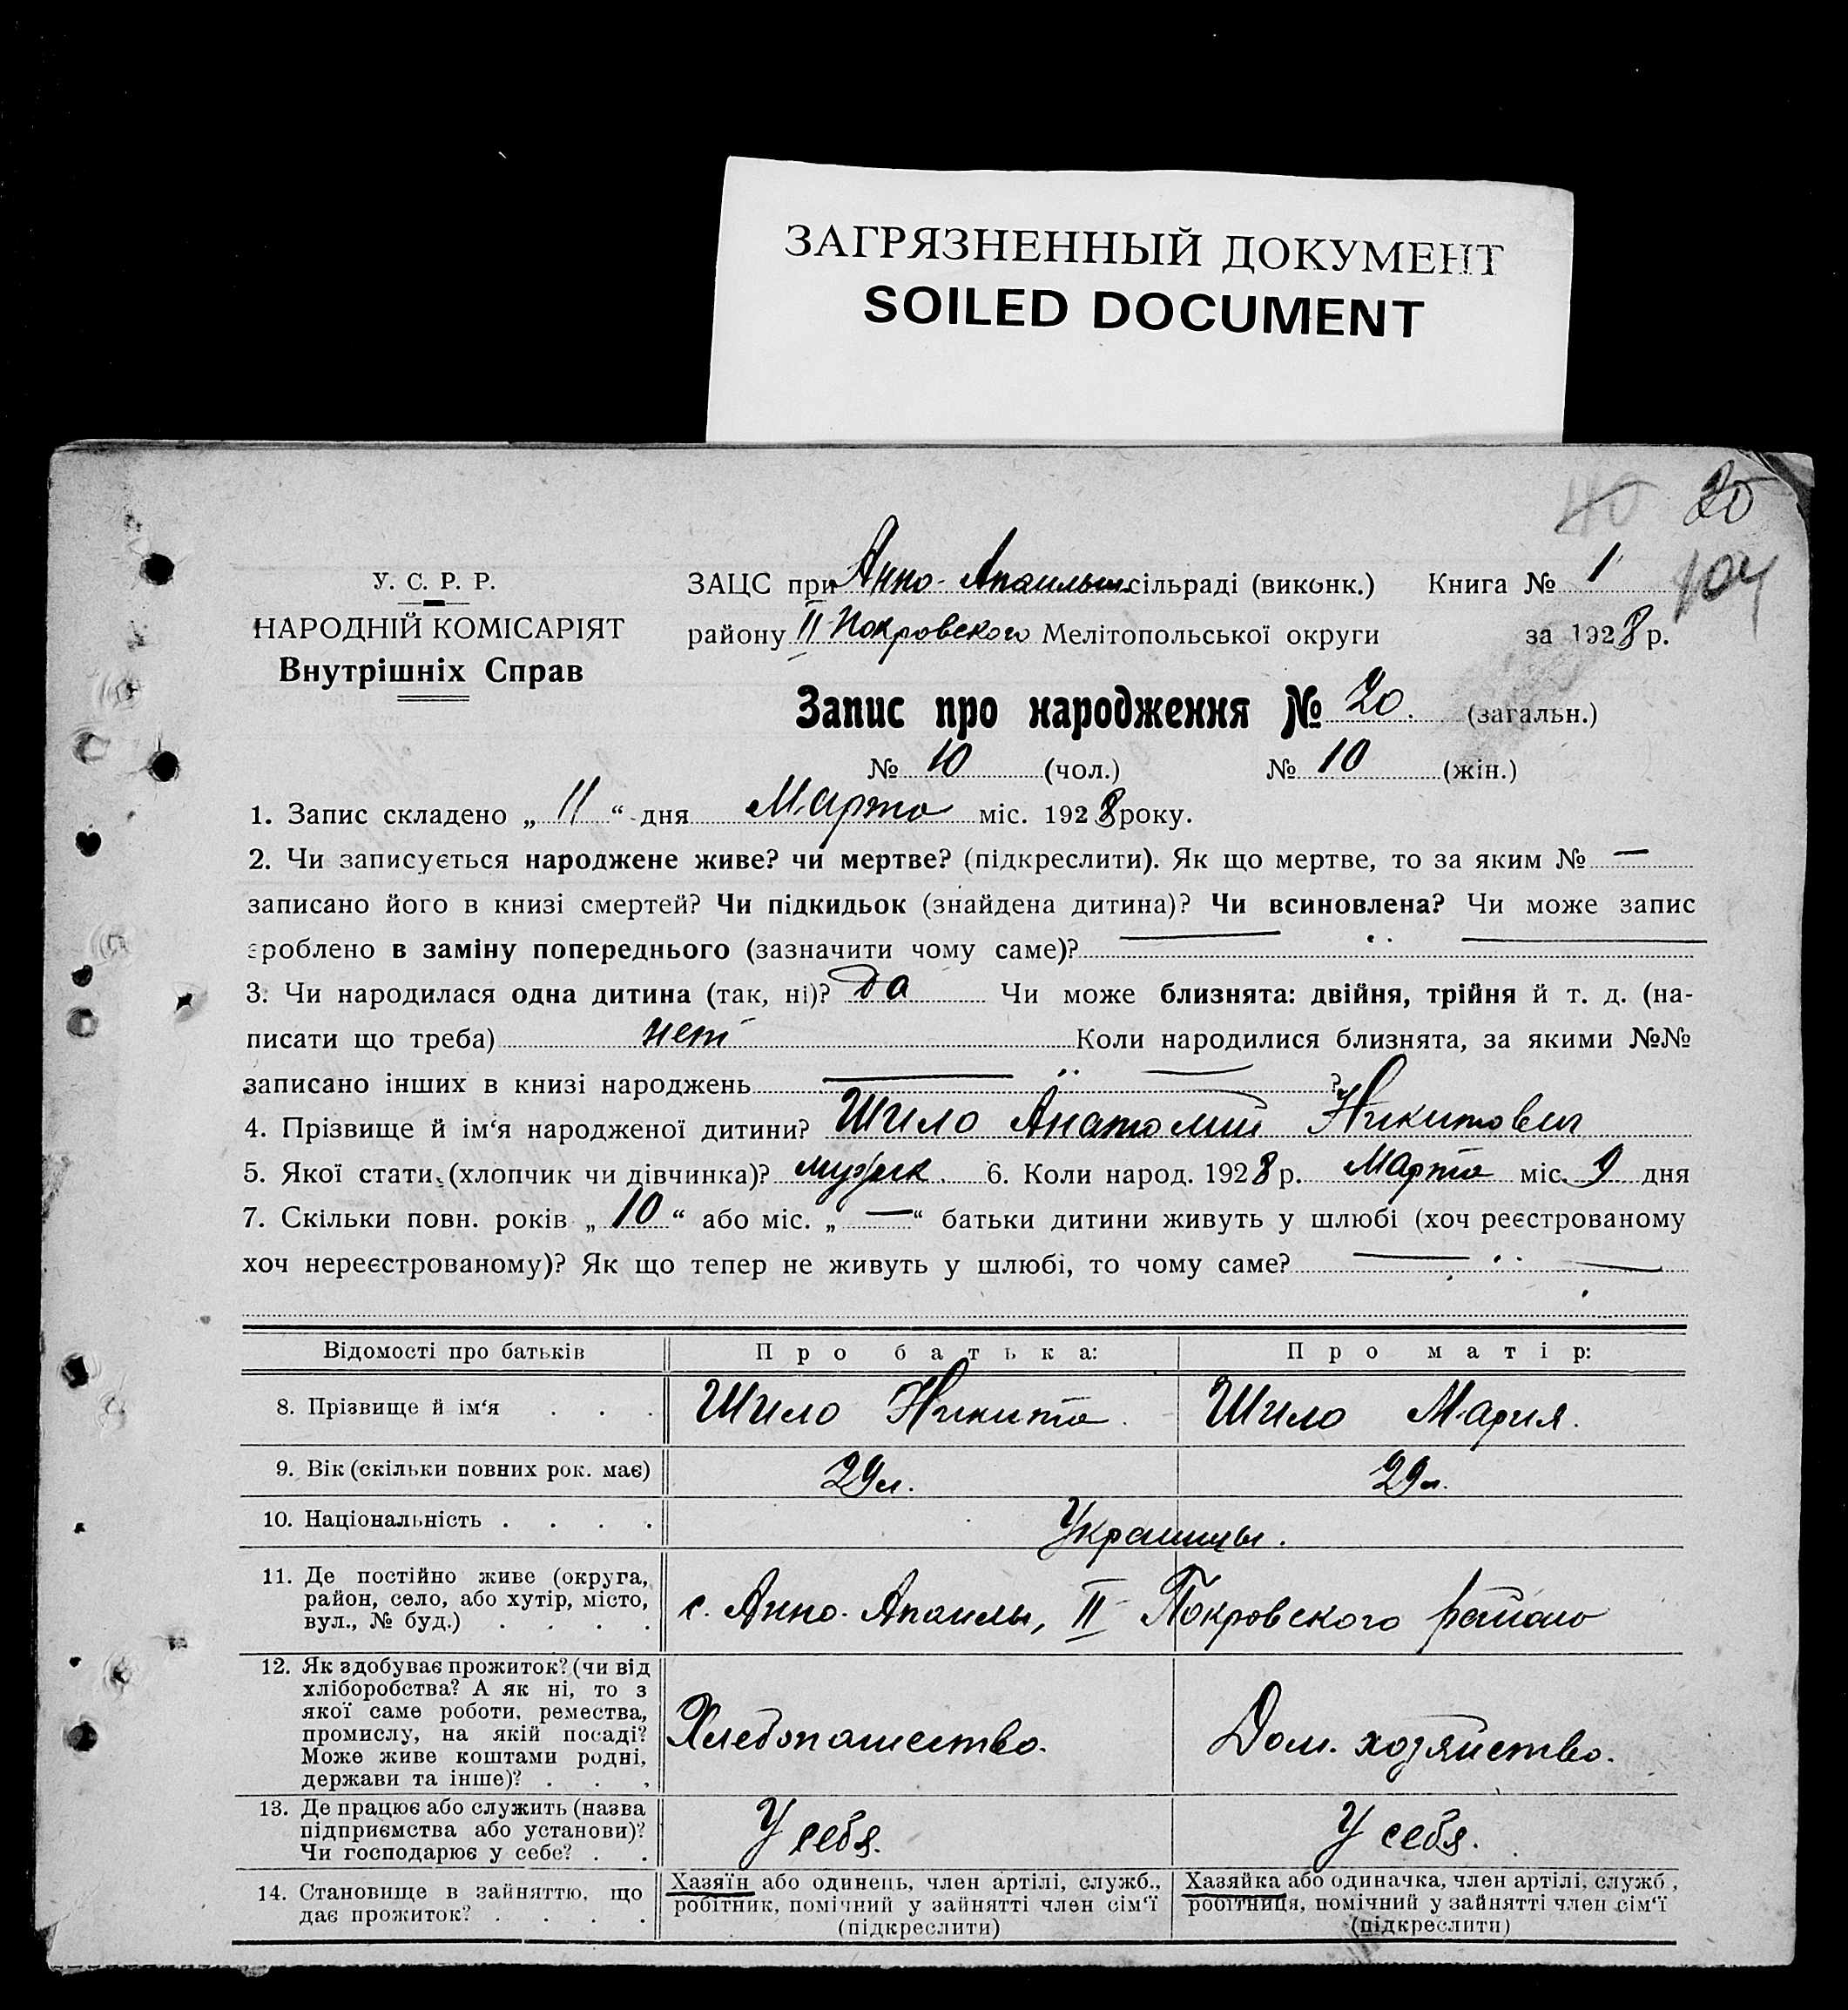 ЗАГРЯЗНЕННЫЙ ДОКУМЕНТ
SOILED DOCUMENT
40 20
104
У. С. Р. Р.
НАРОДНІЙ КОМІСАРІЯТ
Внутрішніх Справ
ЗАЦС при Анно- сільраді (виконк.) Книга № 1
району II Покровского Мелітопольської округи за 1928 р.
Запис про народження № 20. (загальн.)
№ 10 (чол.) № 10 (жін.)
1. Запис складено „ 11 “ дня Марта міс. 1928 року.
2. Чи записується народжене живе? чи мертве? (підкреслити). Як що мертве, то за яким № —
записано його в книзі смертей? Чи підкидьок (знайдена дитина)? Чи всиновлена? Чи може запис
зроблено в заміну попереднього (зазначити чому саме)? — „ —
3. Чи народилася одна дитина (так, ні)? да Чи може близнята: двійня, трійня й т. д. (на-
писати що треба) нет Коли народилися близнята, за якими №№
записано інших в книзі народжень — „ — ?
4. Прізвище й ім‘я народженої дитини? Шило Анатолий Никитович
5. Якої стати (хлопчик чи дівчинка)? мужск. 6. Коли народ. 1928 р. Марта міс. 9 дня
7. Скільки повн. років „ 10 “ або міс. „ — “ батьки дитини живуть у шлюбі (хоч реєстрованому
хоч нереєстрованому)? Як що тепер не живуть у шлюбі, то чому саме? — „ —
Відомості про батьків Про батька: Про матір:
8. Прізвище й ім‘я . . . Шило Никита. Шило Мария.
9. Вік (скільки повних рок. має) 29 л. 29 л.
10. Національність . . . . Украинцы.
11. Де постійно живе (округа,
район, село, або хутір, місто,
вул., № буд.) . . . .
с. Анно-Апаилы, II Покровского района
12. Як здобуває прожиток? (чи від
хліборобства? А як ні, то з
якої саме роботи, ремества,
промислу, на якій посаді?
Може живе коштами родні,
держави та інше)? . . .
Хлебопашество. Дом. хозяйство.
13. Де працює або служить (назва
підприємства або установи)?
Чи господарює у себе? . .
У себя. У себя.
14. Становище в зайняттю, що
дає прожиток? . . . .
Хазяїн або одинець, член артілі, служб.,
робітник, помічний у зайнятті член сім‘ї
(підкреслити)
Хазяйка або одиначка, член артілі, служб.,
робітниця, помічний у зайнятті член сім‘ї
(підкреслити)